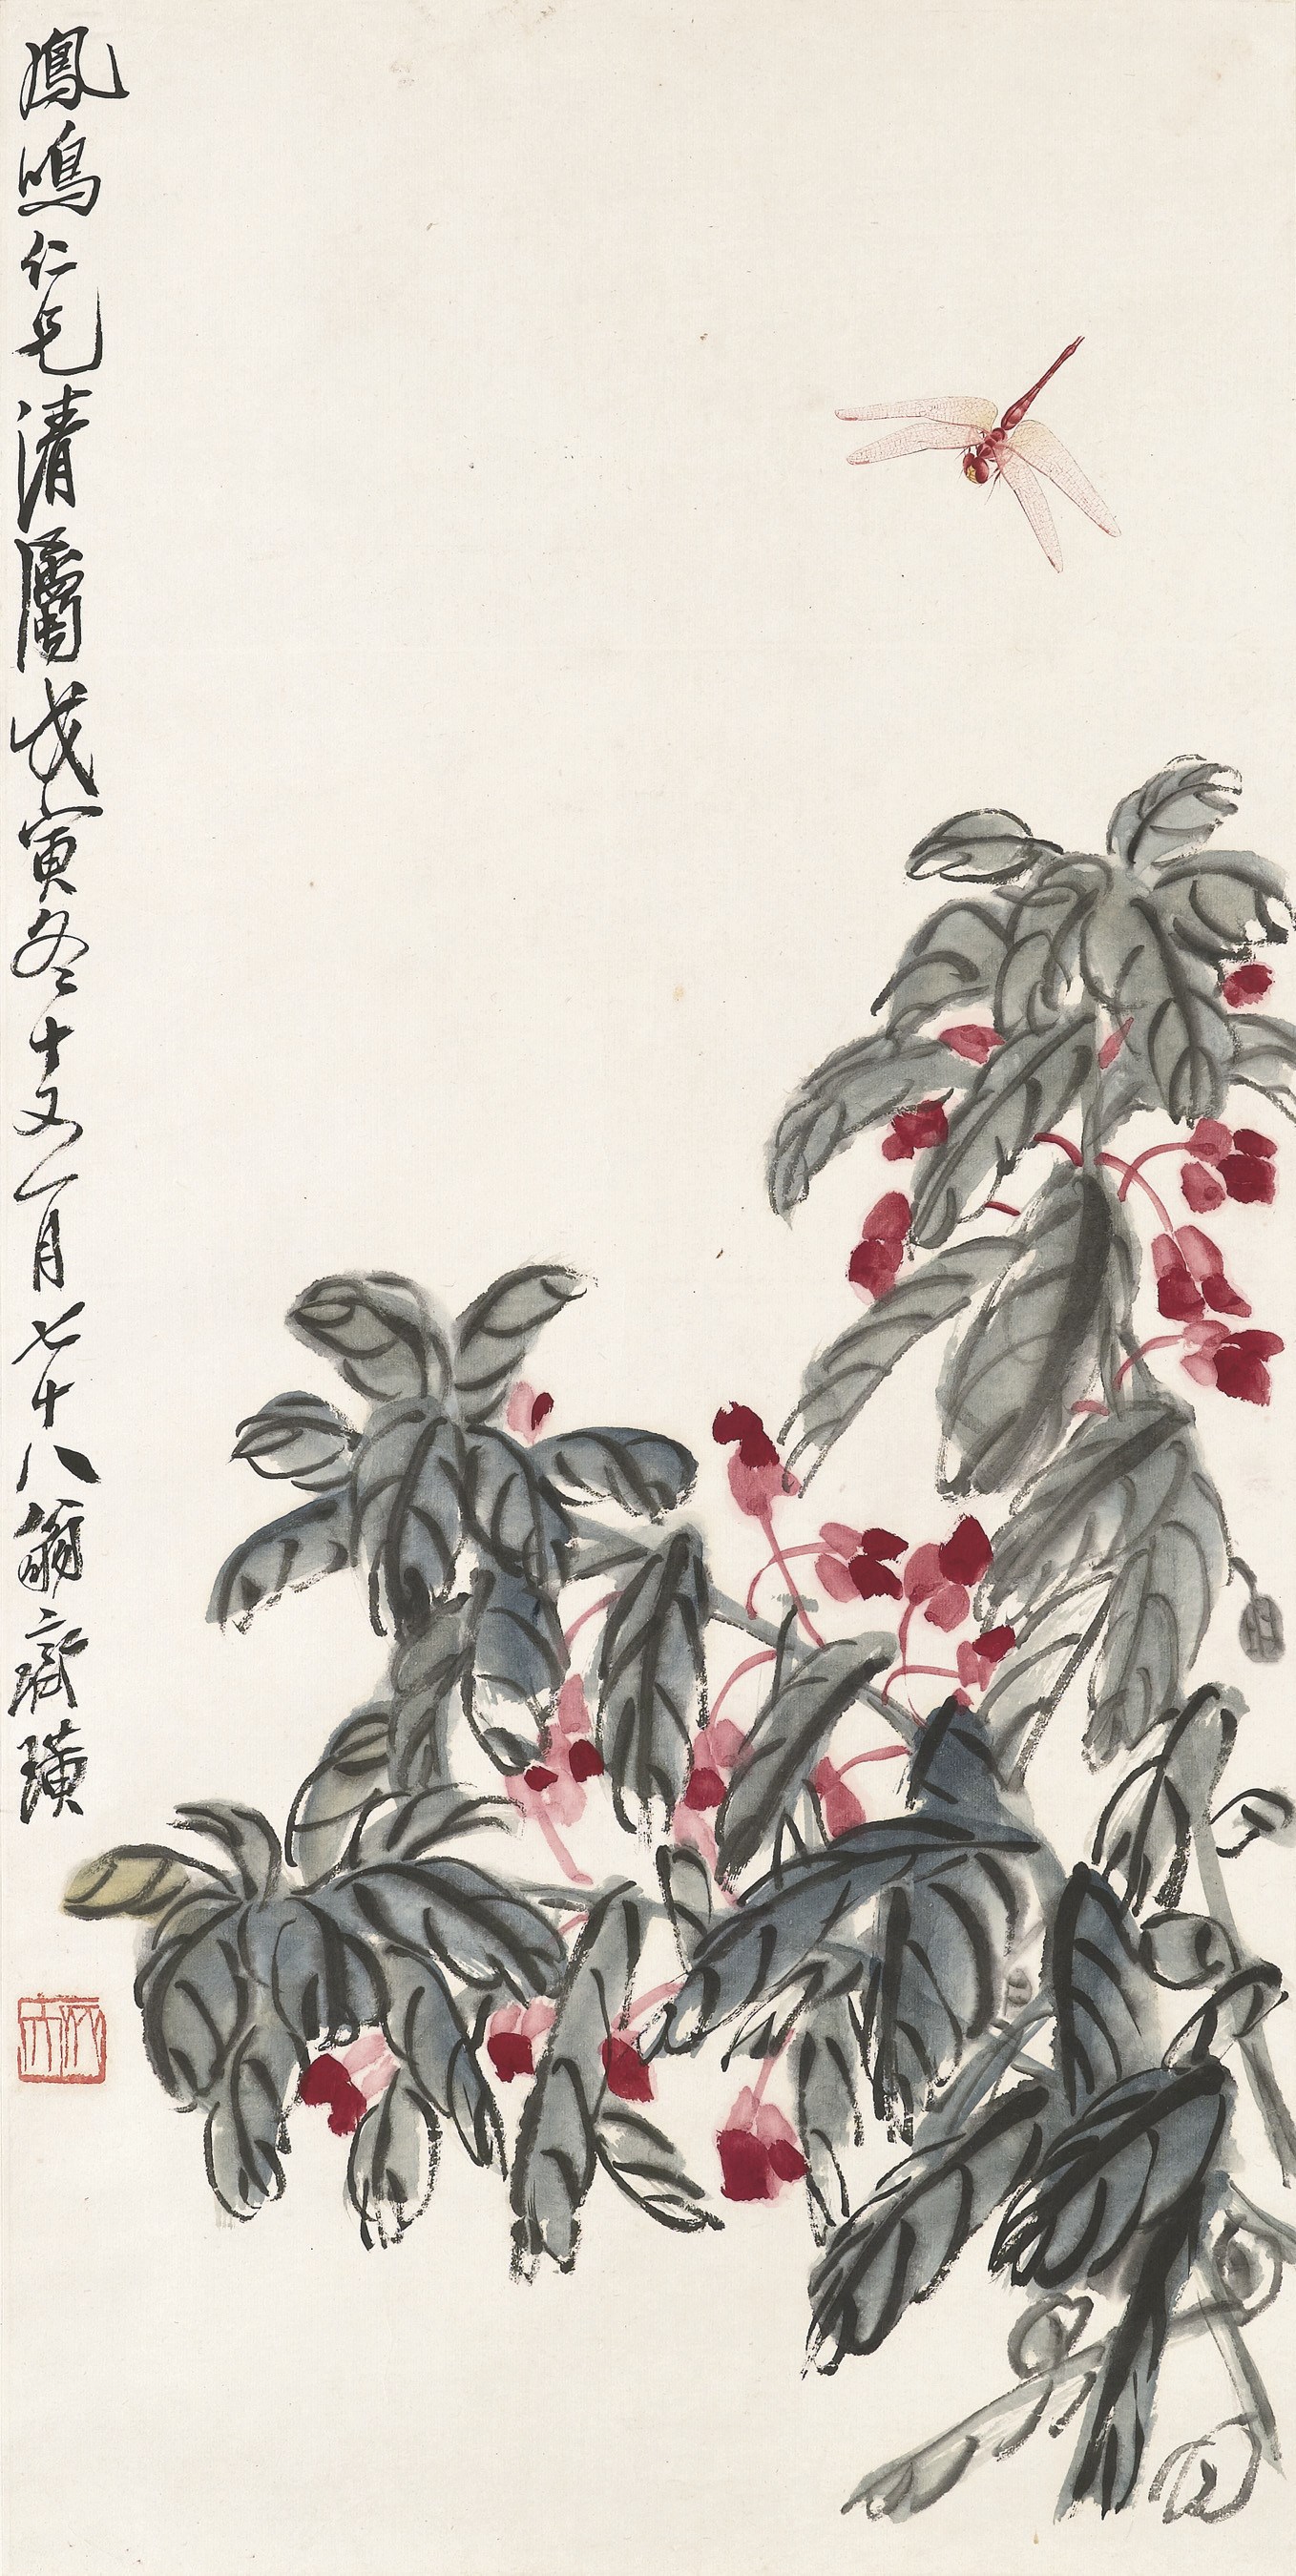 鳳鳴仁兄清屬戊寅冬十又一月七十八翁齊璜
木人